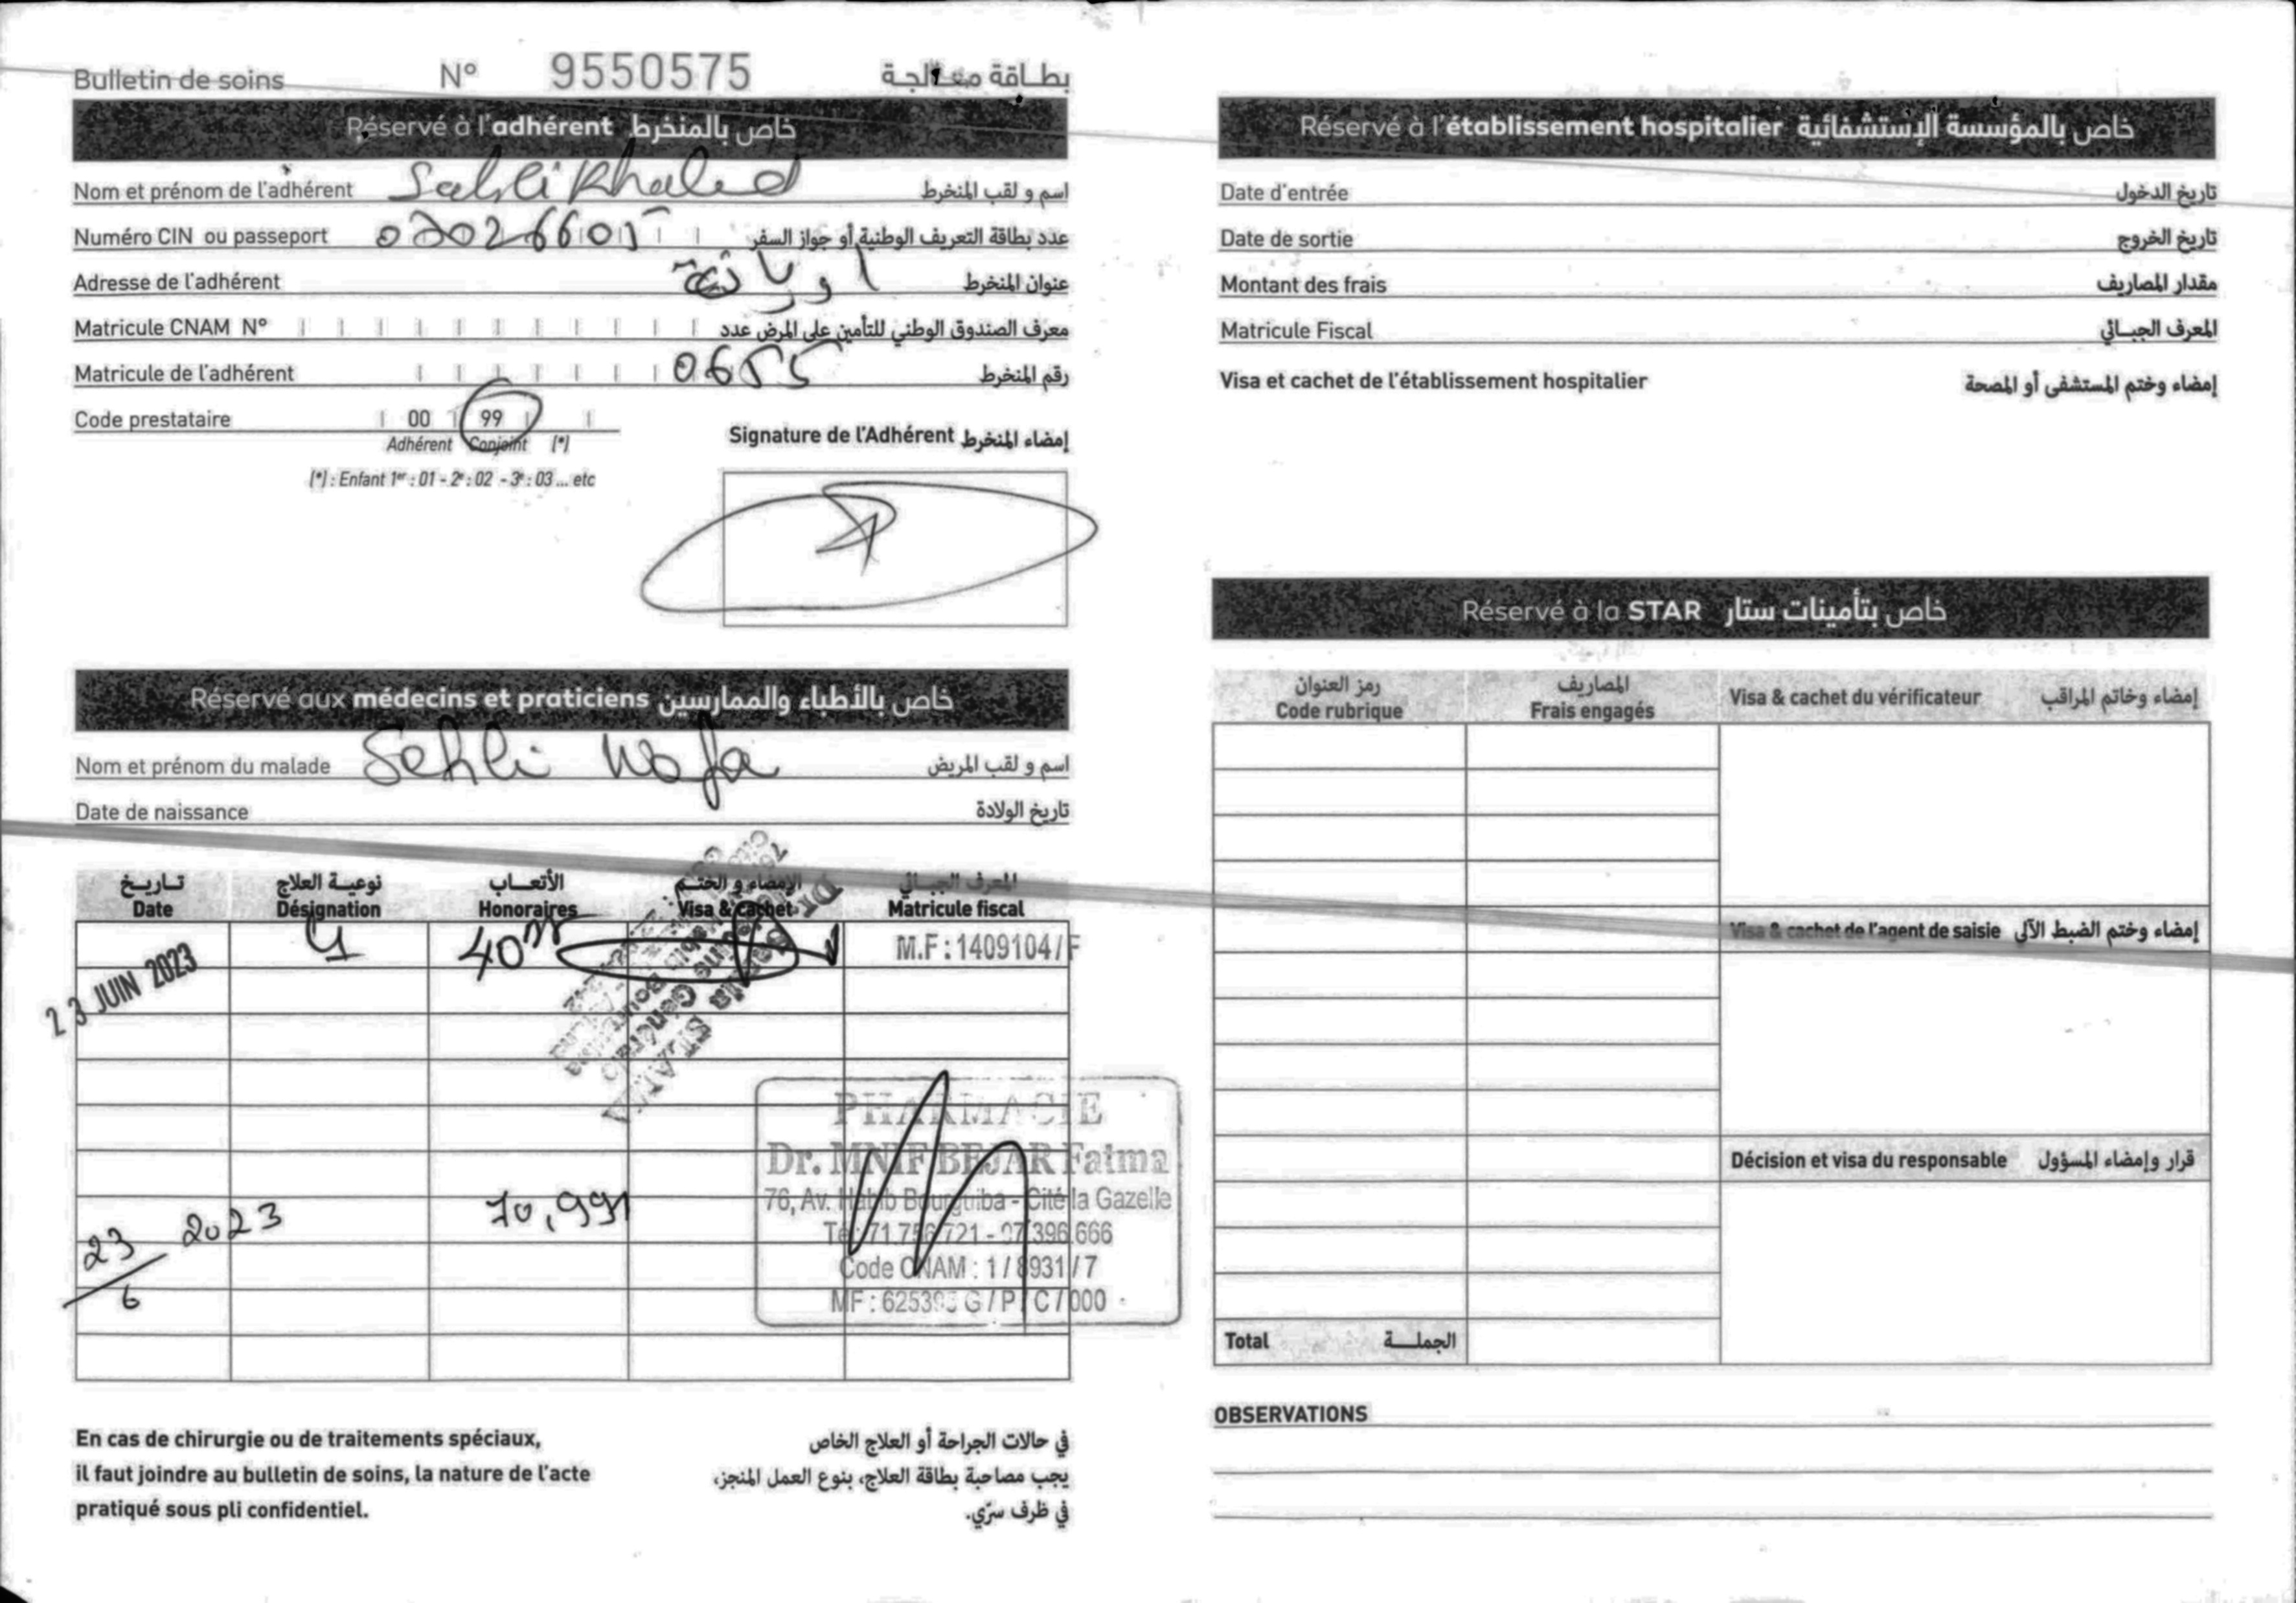 Bulletin de soins N° 9550575 بطاقة معالجة
Réservé à l'adhérent خاص بالمنخرط
Nom et prénom de l'adhérent Sahli Khaled اسم و لقب المنخرط
Numéro CIN ou passeport عدد بطاقة التعريف الوطنية أو جواز السفر
Adresse de l'adhérent عنوان المنخرط
Matricule CNAM N° معرف الصندوق الوطني للتأمين على المرض عدد
Matricule de l'adhérent 0655 رقم المنخرط
Code prestataire 00 99
Adhérent Conjoint (*)
(*) : Enfant 1er : 01 - 2e : 02 - 3e : 03 ... etc
Signature de l'Adhérent إمضاء المنخرط
Réservé aux médecins et praticiens خاص بالأطباء والممارسين
Nom et prénom du malade Sehli Wafa اسم و لقب المريض
Date de naissance تاريخ الولادة
تاريخ نوعية العلاج الأتعاب الإمضاء و الختم المعرف الجبائي
Date Désignation Honoraires Visa & cachet Matricule fiscal
23 JUIN 2023 40 M.F : 1409104 / F
PHARMACIE
Dr. MNIF BEJAR Fatma
76, Av. Habib Bourguiba - Cité la Gazelle
23/6 2023 70,991
Code CNAM : 1 / 8931 / 7
En cas de chirurgie ou de traitements spéciaux,
il faut joindre au bulletin de soins, la nature de l'acte
pratiqué sous pli confidentiel.
في حالات الجراحة أو العلاج الخاص
يجب مصاحبة بطاقة العلاج، بنوع العمل المنجز،
في ظرف سرّي.
Réservé à l'établissement hospitalier خاص بالمؤسسة الإستشفائية
Date d'entrée تاريخ الدخول
Date de sortie تاريخ الخروج
Montant des frais مقدار المصاريف
Matricule Fiscal المعرف الجبائي
Visa et cachet de l'établissement hospitalier إمضاء وختم المستشفى أو المصحة
Réservé à la STAR خاص بتأمينات ستار
رمز العنوان المصاريف
Code rubrique Frais engagés Visa & cachet du vérificateur إمضاء وخاتم المراقب
Visa & cachet de l'agent de saisie إمضاء وختم الضبط الآلي
Décision et visa du responsable قرار وإمضاء المسؤول
Total الجملة
OBSERVATIONS